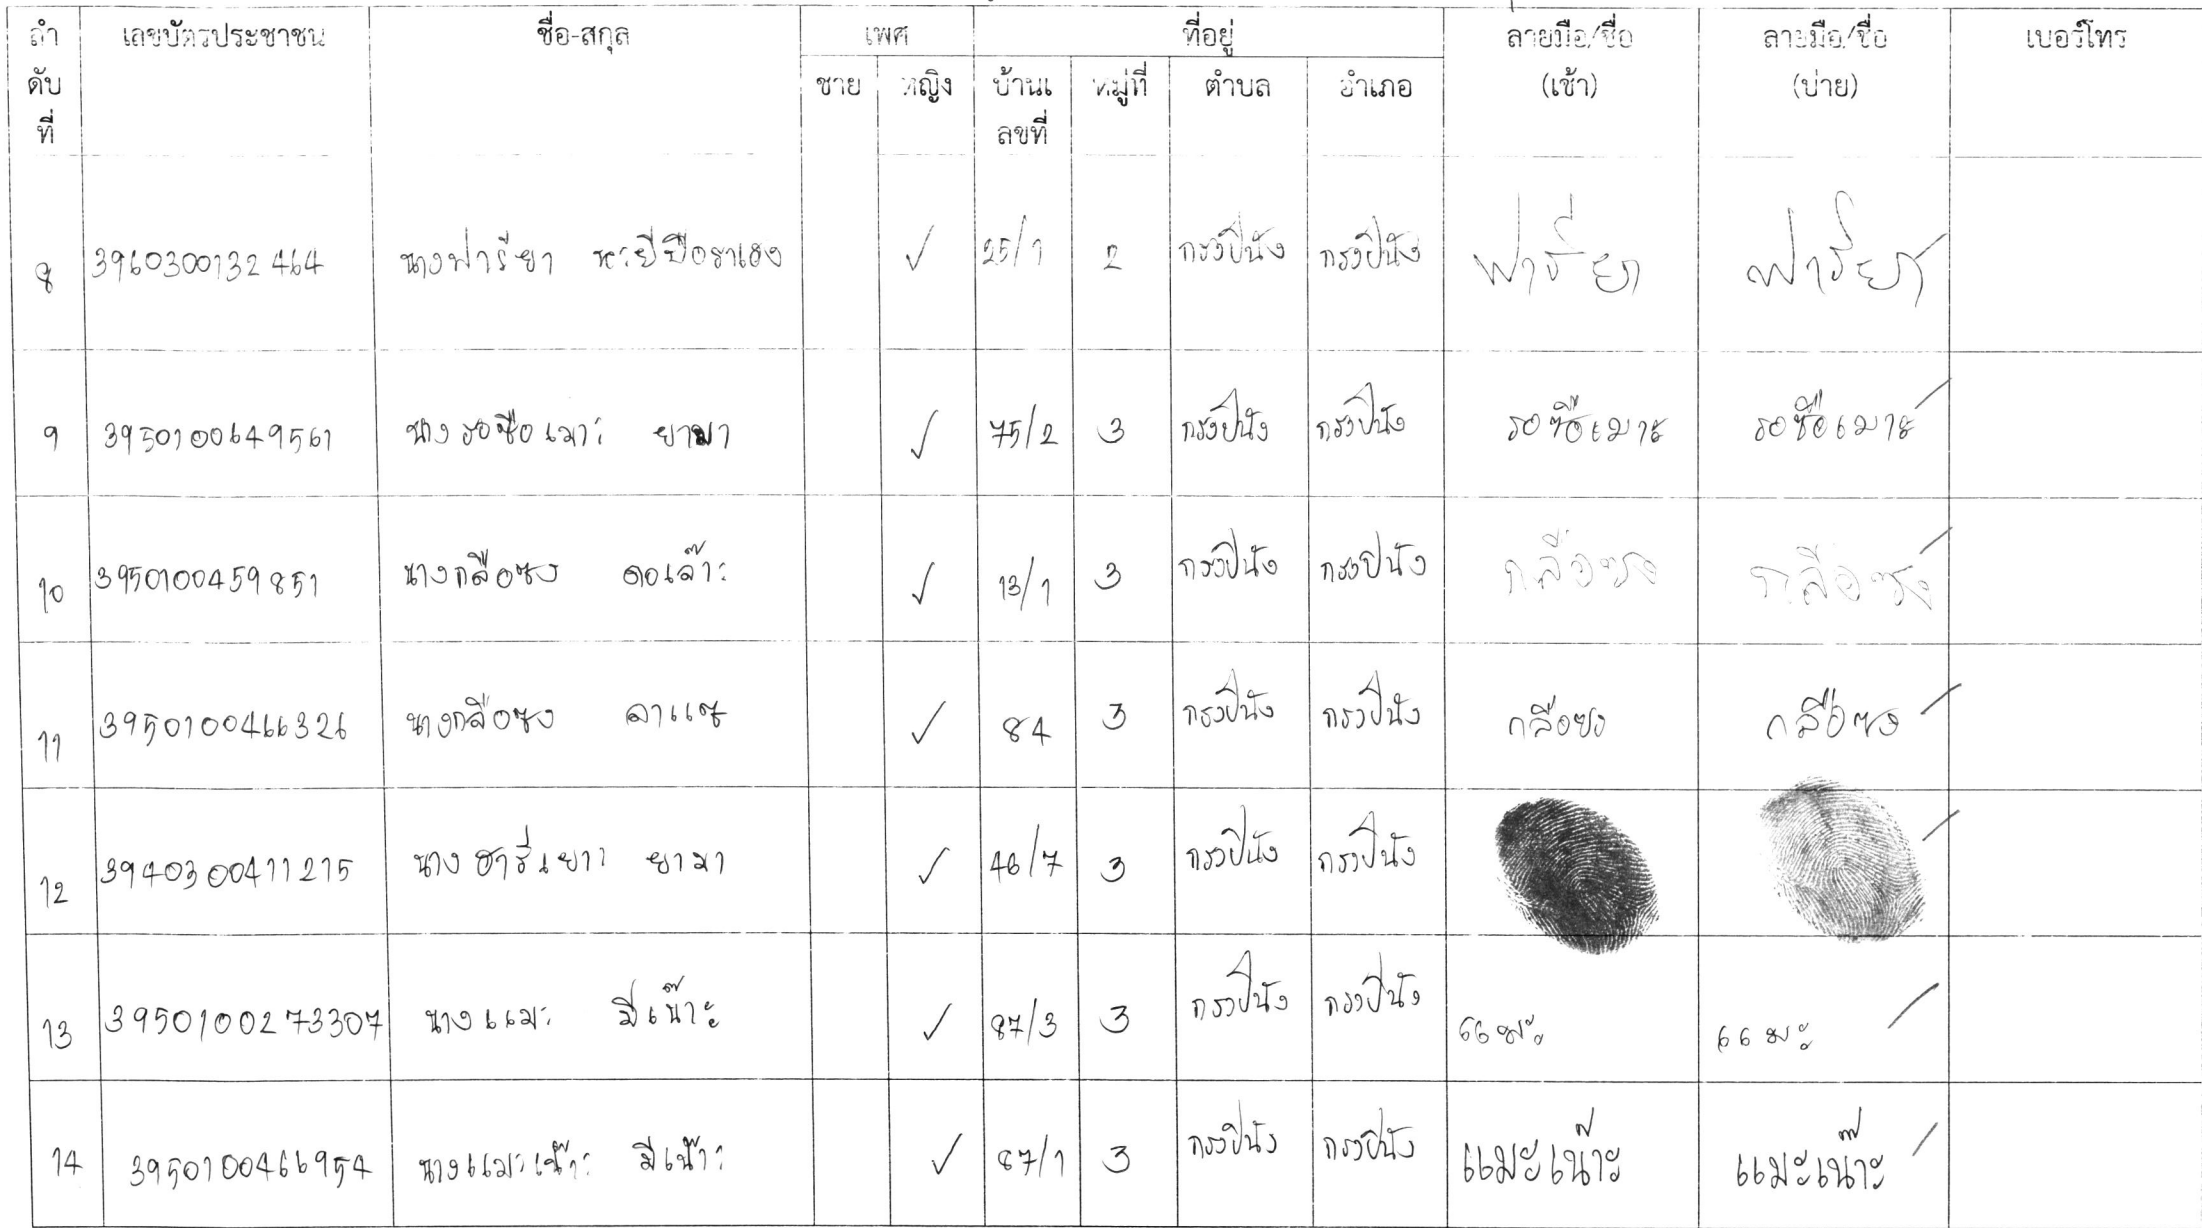 ลำดับที่ เลขบัตรประชาชน ชื่อ-สกุล เพศ ที่อยู่ ลายมือ/ชื่อ (เช้า) ลายมือ/ชื่อ (บ่าย) เบอร์โทร
ชาย หญิง บ้านเลขที่ หมู่ที่ ตำบล อำเภอ
8 3960300132464 นางฟารียา ✓ 25/1 2 กรงปินัง กรงปินัง ฟารียา ฟารียา
9 3950100649561 นางรอซือเมาะ ยามา ✓ 75/2 3 กรงปินัง กรงปินัง รอซือเมาะ รอซือเมาะ
10 3950100459851 นางกลือซง ดอเล๊าะ ✓ 13/1 3 กรงปินัง กรงปินัง กลือซง กลือซง
11 3950100466326 นางกลือซง ลาแซ ✓ 84 3 กรงปินัง กรงปินัง กลือซง กลือซง
12 3940300411215 นางฮารีเยาะ ยามา ✓ 46/7 3 กรงปินัง กรงปินัง
13 3950100273307 นางแมะ มีเน๊าะ ✓ 87/3 3 กรงปินัง กรงปินัง แมะ แมะ
14 3950100466954 นางแมะเน๊าะ มีเน๊าะ ✓ 87/1 3 กรงปินัง กรงปินัง แมะเน๊าะ แมะเน๊าะ